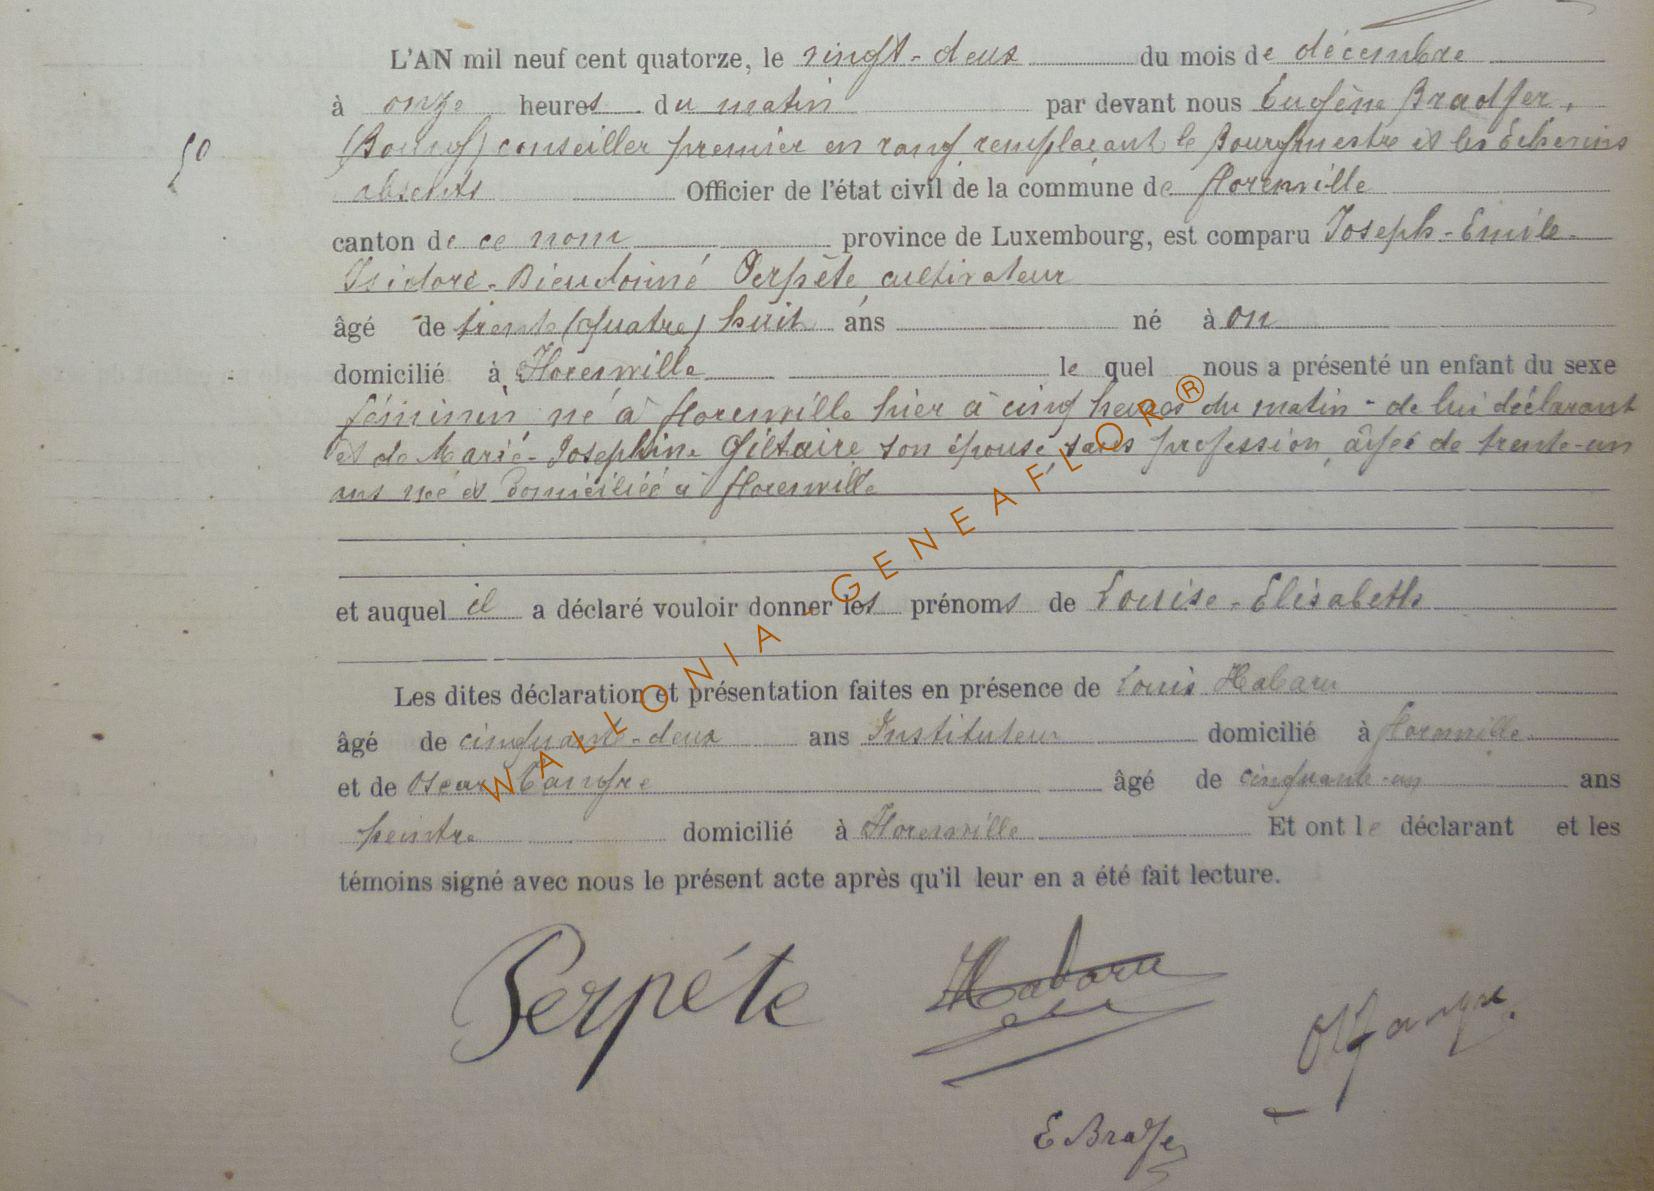 L'AN mil neuf cent quatorze, le vingt-deux du mois de décembre
à onze heures du matin par devant nous Eugène Bradfer,
50
(Bourg) conseiller premier en rang remplaçant le Bourgmestre et les Echevins
absents Officier de l'état civil de la commune de Florenville
canton de ce nom province de Luxembourg, est comparu Joseph-Emile-
Isidore-Dieudonné Perpète cultivateur
âgé de trente (quatre) huit ans né à On
domicilié à Florenville le quel nous a présenté un enfant du sexe
féminin né à Florenville hier à cinq heures du matin - de lui déclarant
et de Marie-Josephine Giltaire son épouse, sans profession, âgée de trente-un
ans née et domiciliée à Florenville
et auquel il a déclaré vouloir donner les prénoms de Louise-Elisabeth
Les dites déclaration et présentation faites en présence de Louis Habaru
âgé de cinquante-deux ans Instituteur domicilié à Florenville
et de Oscar âgé de cinquante-un ans
peintre domicilié à Florenville Et ont le déclarant et les
témoins signé avec nous le présent acte après qu'il leur en a été fait lecture.
Perpéte Habaru
E Bradfer
WALLONIA - GENEAFLOR ®